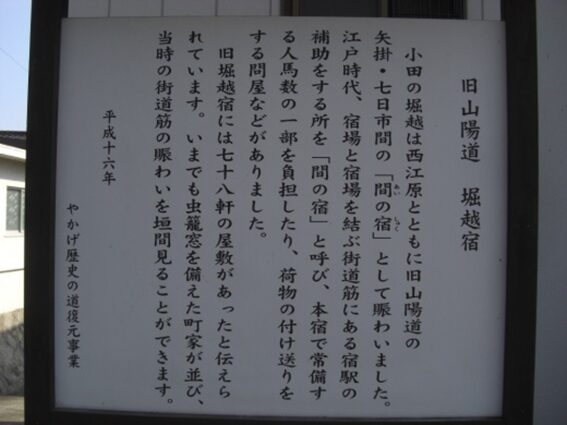 旧山陽道 堀越宿
小田の堀越は西江原とともに旧山陽道の
矢掛・七日市間の「間の宿」として賑わいました。
あい しゅく
江戸時代、宿場と宿場を結ぶ街道筋にある宿駅の
補助をする所を「間の宿」と呼び、本宿で常備す
る人馬数の一部を負担したり、荷物の付け送りを
する問屋などがありました。
旧堀越宿には七十八軒の屋敷があったと伝えら
れています。いまでも虫籠窓を備えた町家が並び、
当時の街道筋の賑わいを垣間見ることができます。
平成十六年
やかげ歴史の道復元事業